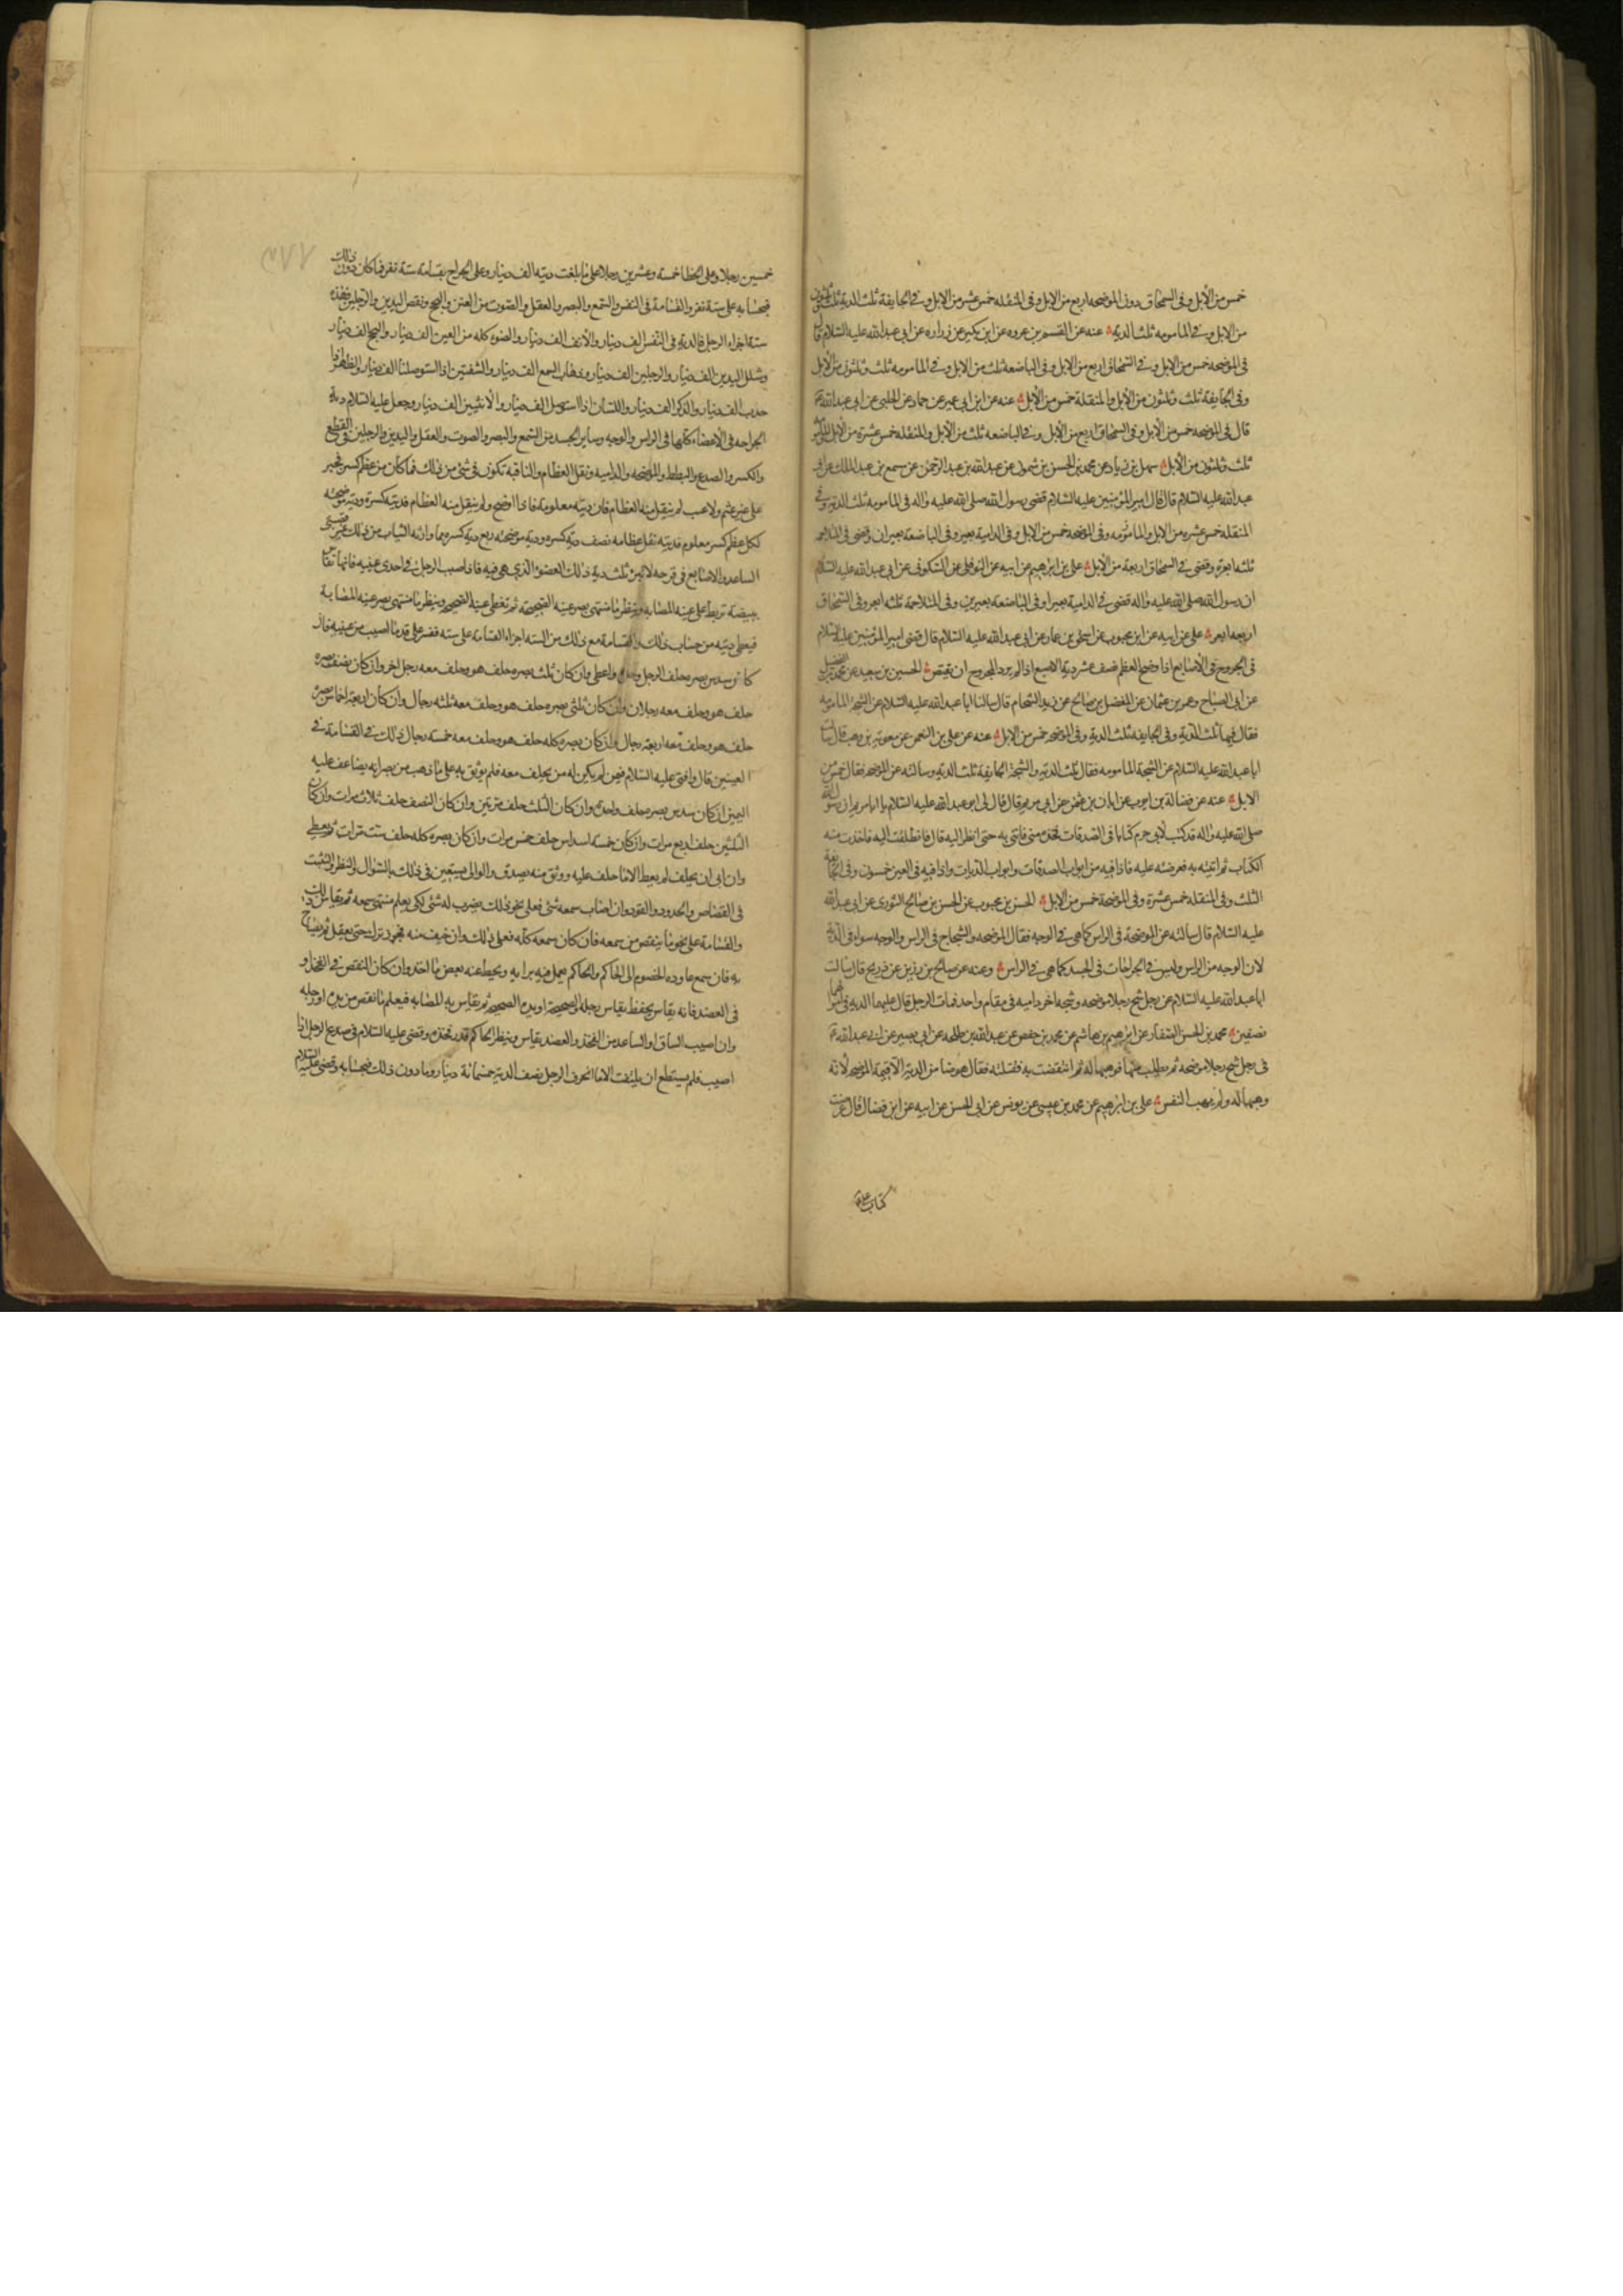 خمس من الابل وفى السمحاق دون الموضحه اربع من الابل وفى المنقله خمس عشر من الابل وفى الجايفة ثلث الدية ثلث وثلثون
من الابل وفى المامومه ثلث الدية عنه عن القسم بن عروه عن ابن بكير عن زراره عن ابى عبد الله عليه السلام قال
فى الموضحه خمس من الابل وفى السمحاق اربع من الابل وفى الباضعه ثلث من الابل وفى المامومه ثلث وثلثون من الابل
وفى الجايفة ثلث وثلثون من الابل والمنقلة خمس من الابل عنه عن ابن ابى عمير عن حماد عن الحلبى عن ابى عبد الله ع
قال فى الموضحه خمس من الابل وفى السمحاق اربع من الابل وفى الباضعه ثلث من الابل والمنقله خمس عشرة من الابل
ثلث وثلثون من الابل سهل بن زياد عن محمد بن الحسن بن شمون عن عبد الله بن عبد الرحمن عن مسمع بن عبد الملك عن ابى
عبد الله عليه السلام قال قال امير المؤمنين عليه السلام قضى رسول الله صلى الله عليه واله فى المامومه ثلث الدية وفى
المنقله خمس عشره من الابل والمامومه وفى الموضحه خمس من الابل وفى الدامية بعير وفى الباضعة بعيران وقضى فى المتلاحمه
ثلثه ابعرة وقضى فى السمحاق اربعة من الابل على بن ابرهيم عن ابيه عن النوفلى عن السكونى عن ابى عبد الله عليه السلام
ان رسول الله صلى الله عليه واله قضى فى الدامية بعيرا وفى الباضعة بعيرين وفى المتلاحمة ثلثه ابعر وفى السمحاق
اربعه ابعر على عن ابيه عن ابن محبوب عن اسحق بن عمار عن ابى عبد الله عليه السلام قال قضى امير المؤمنين عليه السلام
فى الجروح فى الاصابع اذا اوضح العظم نصف عشر دية الاصبع اذا لم يرد المجروح ان يقتص الحسين بن سعيد عن محمد بن الفضيل
عن ابى الصباح وعمرو بن عثمان عن المفضل بن صالح عن زيد الشحام قال سالنا ابا عبد الله عليه السلام عن الشجه المامومه
فقال فيها ثلث الدية وفى الجايفه ثلث الدية وفى الموضحه خمس من الابل عنه عن على بن النعمن عن معويه بن وهب قال سالت
ابا عبد الله عليه السلام عن الشجة المامومه فقال ثلث الدية والشجة الجايفة ثلث الدية وسالته عن الموضحه فقال خمس من
الابل عنه عن فضالة بن ايوب عن ابان بن عثمن عن ابى مريم قال قال لى ابو عبد الله عليه السلام يا ابا مريم ان رسول الله
صلى الله عليه واله قد كتب لابن حزم كتابا فى الصدقات فخذه منه فاتنى به حتى انظر اليه قال فانطلقت اليه فاخذت منه
الكتاب ثم اتيته به فعرضته عليه فاذا فيه من ابواب الصدقات وابواب الديات واذا فيه فى العين خمسون وفى الجايفة
الثلث وفى المنقله خمس عشرة وفى الموضحة خمس من الابل الحسن بن محبوب عن الحسن بن صالح الثورى عن ابى عبد الله
عليه السلام قال سالته عن الموضحة فى الراس كما هى فى الوجه فقال الموضحه والشجاج فى الراس والوجه سواء فى الدية
لان الوجه من الراس وليس فى الجراحات فى الجسد كما هى فى الراس وعنه عن صالح بن رزين عن ذريح قال سالت
ابا عبد الله عليه السلام عن رجل شج رجلا موضحه وشجه اخر داميه فى مقام واحد فمات الرجل قال عليهما الدية فى اموالهما
نصفين محمد بن الحسن الصفار عن ابرهيم بن هاشم عن محمد بن حفص عن عبد الله بن طلحه عن ابى بصير عن ابى عبد الله ع
فى رجل شج رجلا موضحه ثم يطلب فيها فوهبها له ثم انتقضت به فقتلته فقال هو ضامن الدية الا قيمة الموضحه لانه
وهبها له ولم يهب النفس على بن ابرهيم عن محمد بن عيسى عن يونس عن ابى الحسن عن ابيه عن ابن فضال قال عرضت
كتاب على ع
٣٧٧
خمسين رجلا وعلى الخطا خمسة وعشرين رجلا على ما بلغت ديته الف دينار وعلى الجراح بقسامة ستة نفر فما كان دون ذلك
فبحسابه على ستة نفر والقسامة فى النفس والسمع والبصر والعقل والصوت من الغنن والبحح ونقص اليدين والرجلين فهذه
ستة اجزاء الرجل فالدية فى النفس الف دينار والانف الف دينار والضوء كله من العين الف دينار والبحح الف دينار
وشلل اليدين الف دينار والرجلين الف دينار وذهاب السمع الف دينار والشفتين اذا استوصلتا الف دينار والظهر اذا
حدب الف دينار والذكر الف دينار واللسان اذا استوصل الف دينار والانثيين الف دينار وجعل عليه السلام دية
الجراحه فى الاعضاء كلها فى الراس والوجه وساير الجسد من السمع والبصر والصوت والعقل واليدين والرجلين فى القطع
والكسر والصدع والبطط والموضحه والداميه ونقل العظام والناقبه تكون فى شئ من ذلك فما كان من عظم كسر فجبر
على غير عثم ولا عيب لم ينقل منه العظام فان ديته معلومة فاذا اوضح ولم ينقل منه العظام فدية كسره ودية موضحته
لكل عظم كسر معلوم فديته نقل عظامه نصف دية كسره ودية موضحته ربع دية كسره مما وارته الثياب من ذلك غير قصبتى
الساعد والاصابع فى قرحه لا تبرء ثلث دية ذلك العضو الذى هى فيه فاذا اصيب الرجل فى احدى عينيه فانها تقاس
ببيضة تربط على عينه المصابه وينظر ما منتهى بصر عينه الصحيحة ثم تغطى عينه الصحيحه وينظر ما منتهى بصر عينه المصابة
فيعطى ديته من حساب ذلك والقسامة مع ذلك من الستة اجزاء القسامة على ستة نفر على قدر ما اصيب من عينيه فان
كان سدس بصره حلف الرجل وحده واعطى وان كان ثلث بصره حلف هو وحلف معه رجل اخر وان كان نصف بصره
حلف هو وحلف معه رجلان وان كان ثلثى بصره حلف هو وحلف معه ثلثه رجال وان كان اربعة اخماس بصره
حلف هو وحلف معه اربعة رجال وان كان بصره كله حلف هو وحلف معه خمسة رجال ذلك فى القسامة فى
العينين قال وافتى عليه السلام فيمن لم يكن له من يحلف معه فلم يوثق به على ما ذهب من بصره انه يضاعف عليه
اليمين ان كان سدس بصره حلف واحدة وان كان الثلث حلف مرتين وان كان النصف حلف ثلاث مرات وان كان
الثلثين حلف اربع مرات وان كان خمسة اسداس حلف خمس مرات وان كان بصره كله حلف ست مرات ثم يعطى
وان ابى ان يحلف لم يعط الا ما حلف عليه ووثق منه بصدق والوالى يستعين فى ذلك بالسؤال والنظر والتثبت
فى القصاص والحدود والقود وان اصاب سمعه شئ فعلى نحو ذلك يضرب له شئ لكى يعلم منتهى سمعه ثم يقاس ذلك
والقسامة على نحو ما ينقص من سمعه فان كان سمعه كله فعلى ذلك وان خيف منه فجور ترك حتى يغفل ثم يصاح
به فان سمع عاوده الخصوم الى الحاكم والحاكم يعمل فيه برايه ويحط عنه بعض ما اخذ وان كان النقص فى الفخذ او
فى العضد فانه يقاس بخيط يقاس رجله الصحيحة او يده الصحيحه ثم يقاس به المصابه فيعلم ما نقص من يده او رجله
وان اصيب الساق او الساعد من الفخذ والعضد يقاس وينظر الحاكم قدر فخذه وقضى عليه السلام فى صدع الرجل اذا
اصيب فلم يستطع ان يلتفت الا ما انحرف الرجل نصف الدية خمسمائة دينار وما دون ذلك فبحسابه وقضى عليه السلام